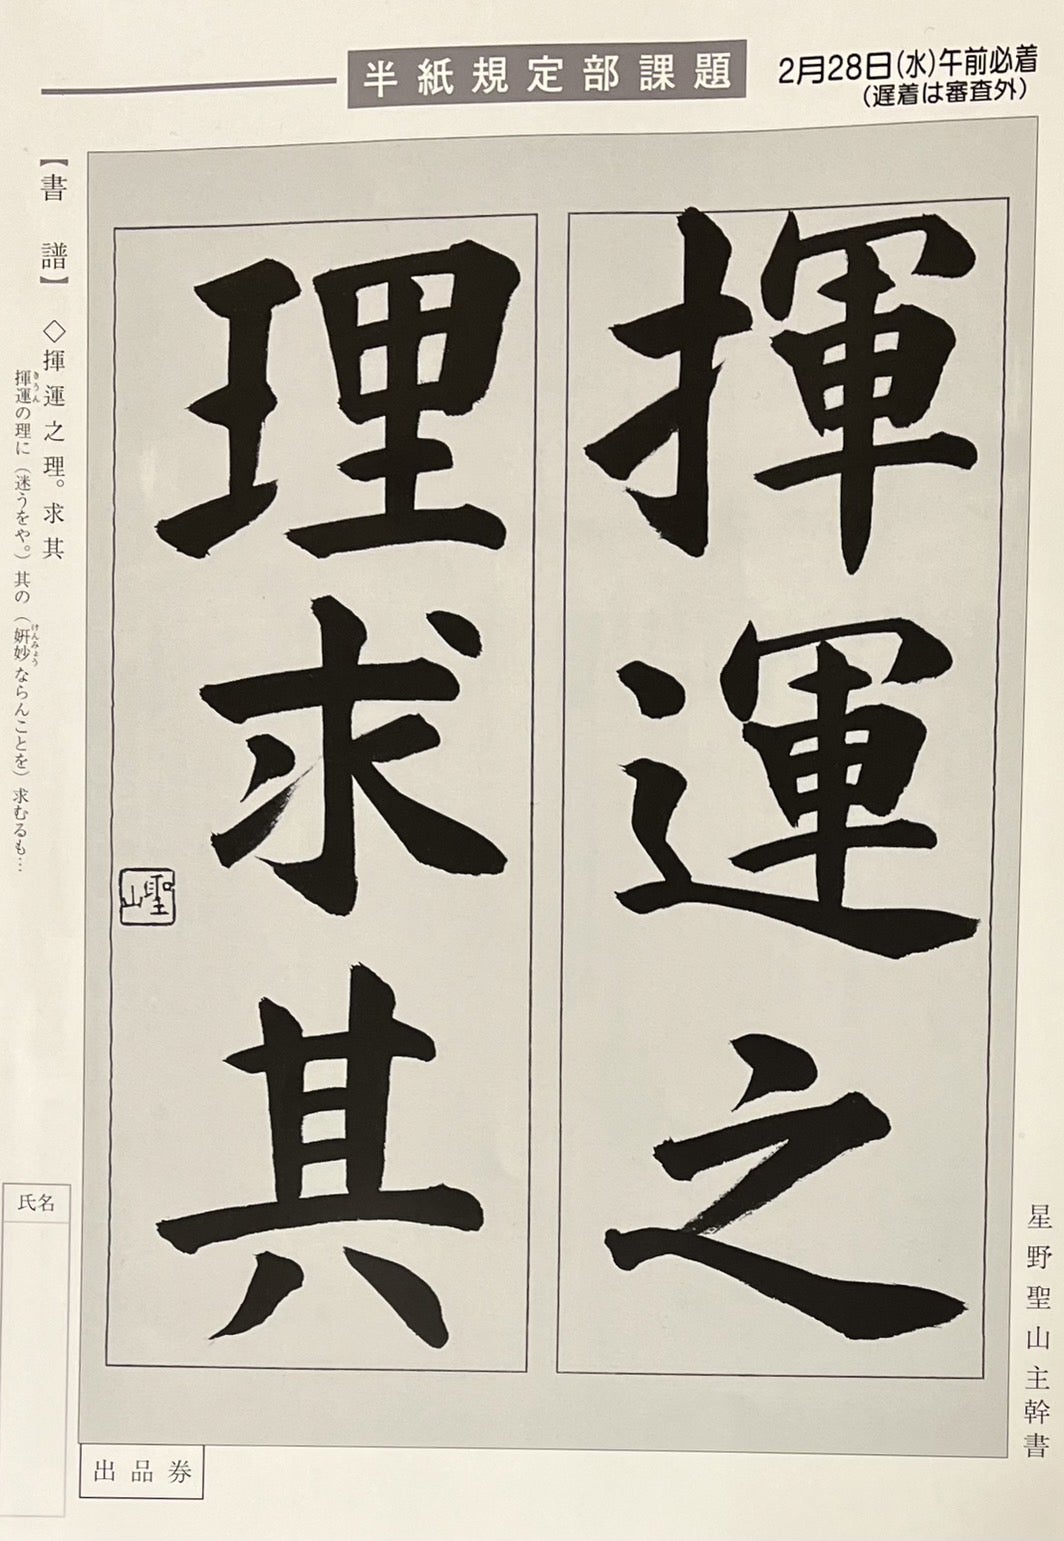 半紙規定部課題
2月28日(水)午前必着
(遅着は審査外)
揮運之
理求其
聖山
【書譜】 ◇揮運之理。求其
揮運の理に(迷うをや。)其の(妍妙ならんことを)求むるも…
きうん
けんみょう
星野聖山主幹書
氏名
出品券